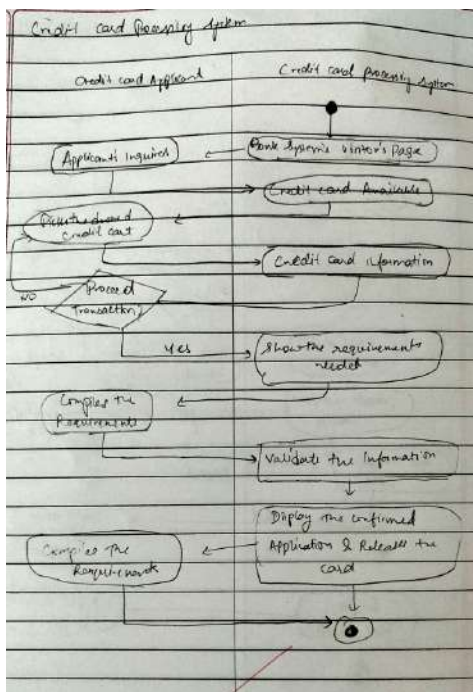 Credit card Processing System
Credit card Applicant
Credit card processing System
Bank System's Visitor's Page
Applicant's Inquires
Credit card Available
Credit card
Credit card information
Proceed
Transaction?
NO
Yes
Show the requirements
needed
Compiles the
Requirements
Validate the Information
Display the confirmed
Application & Releases the
card
Compiles The
Requirements